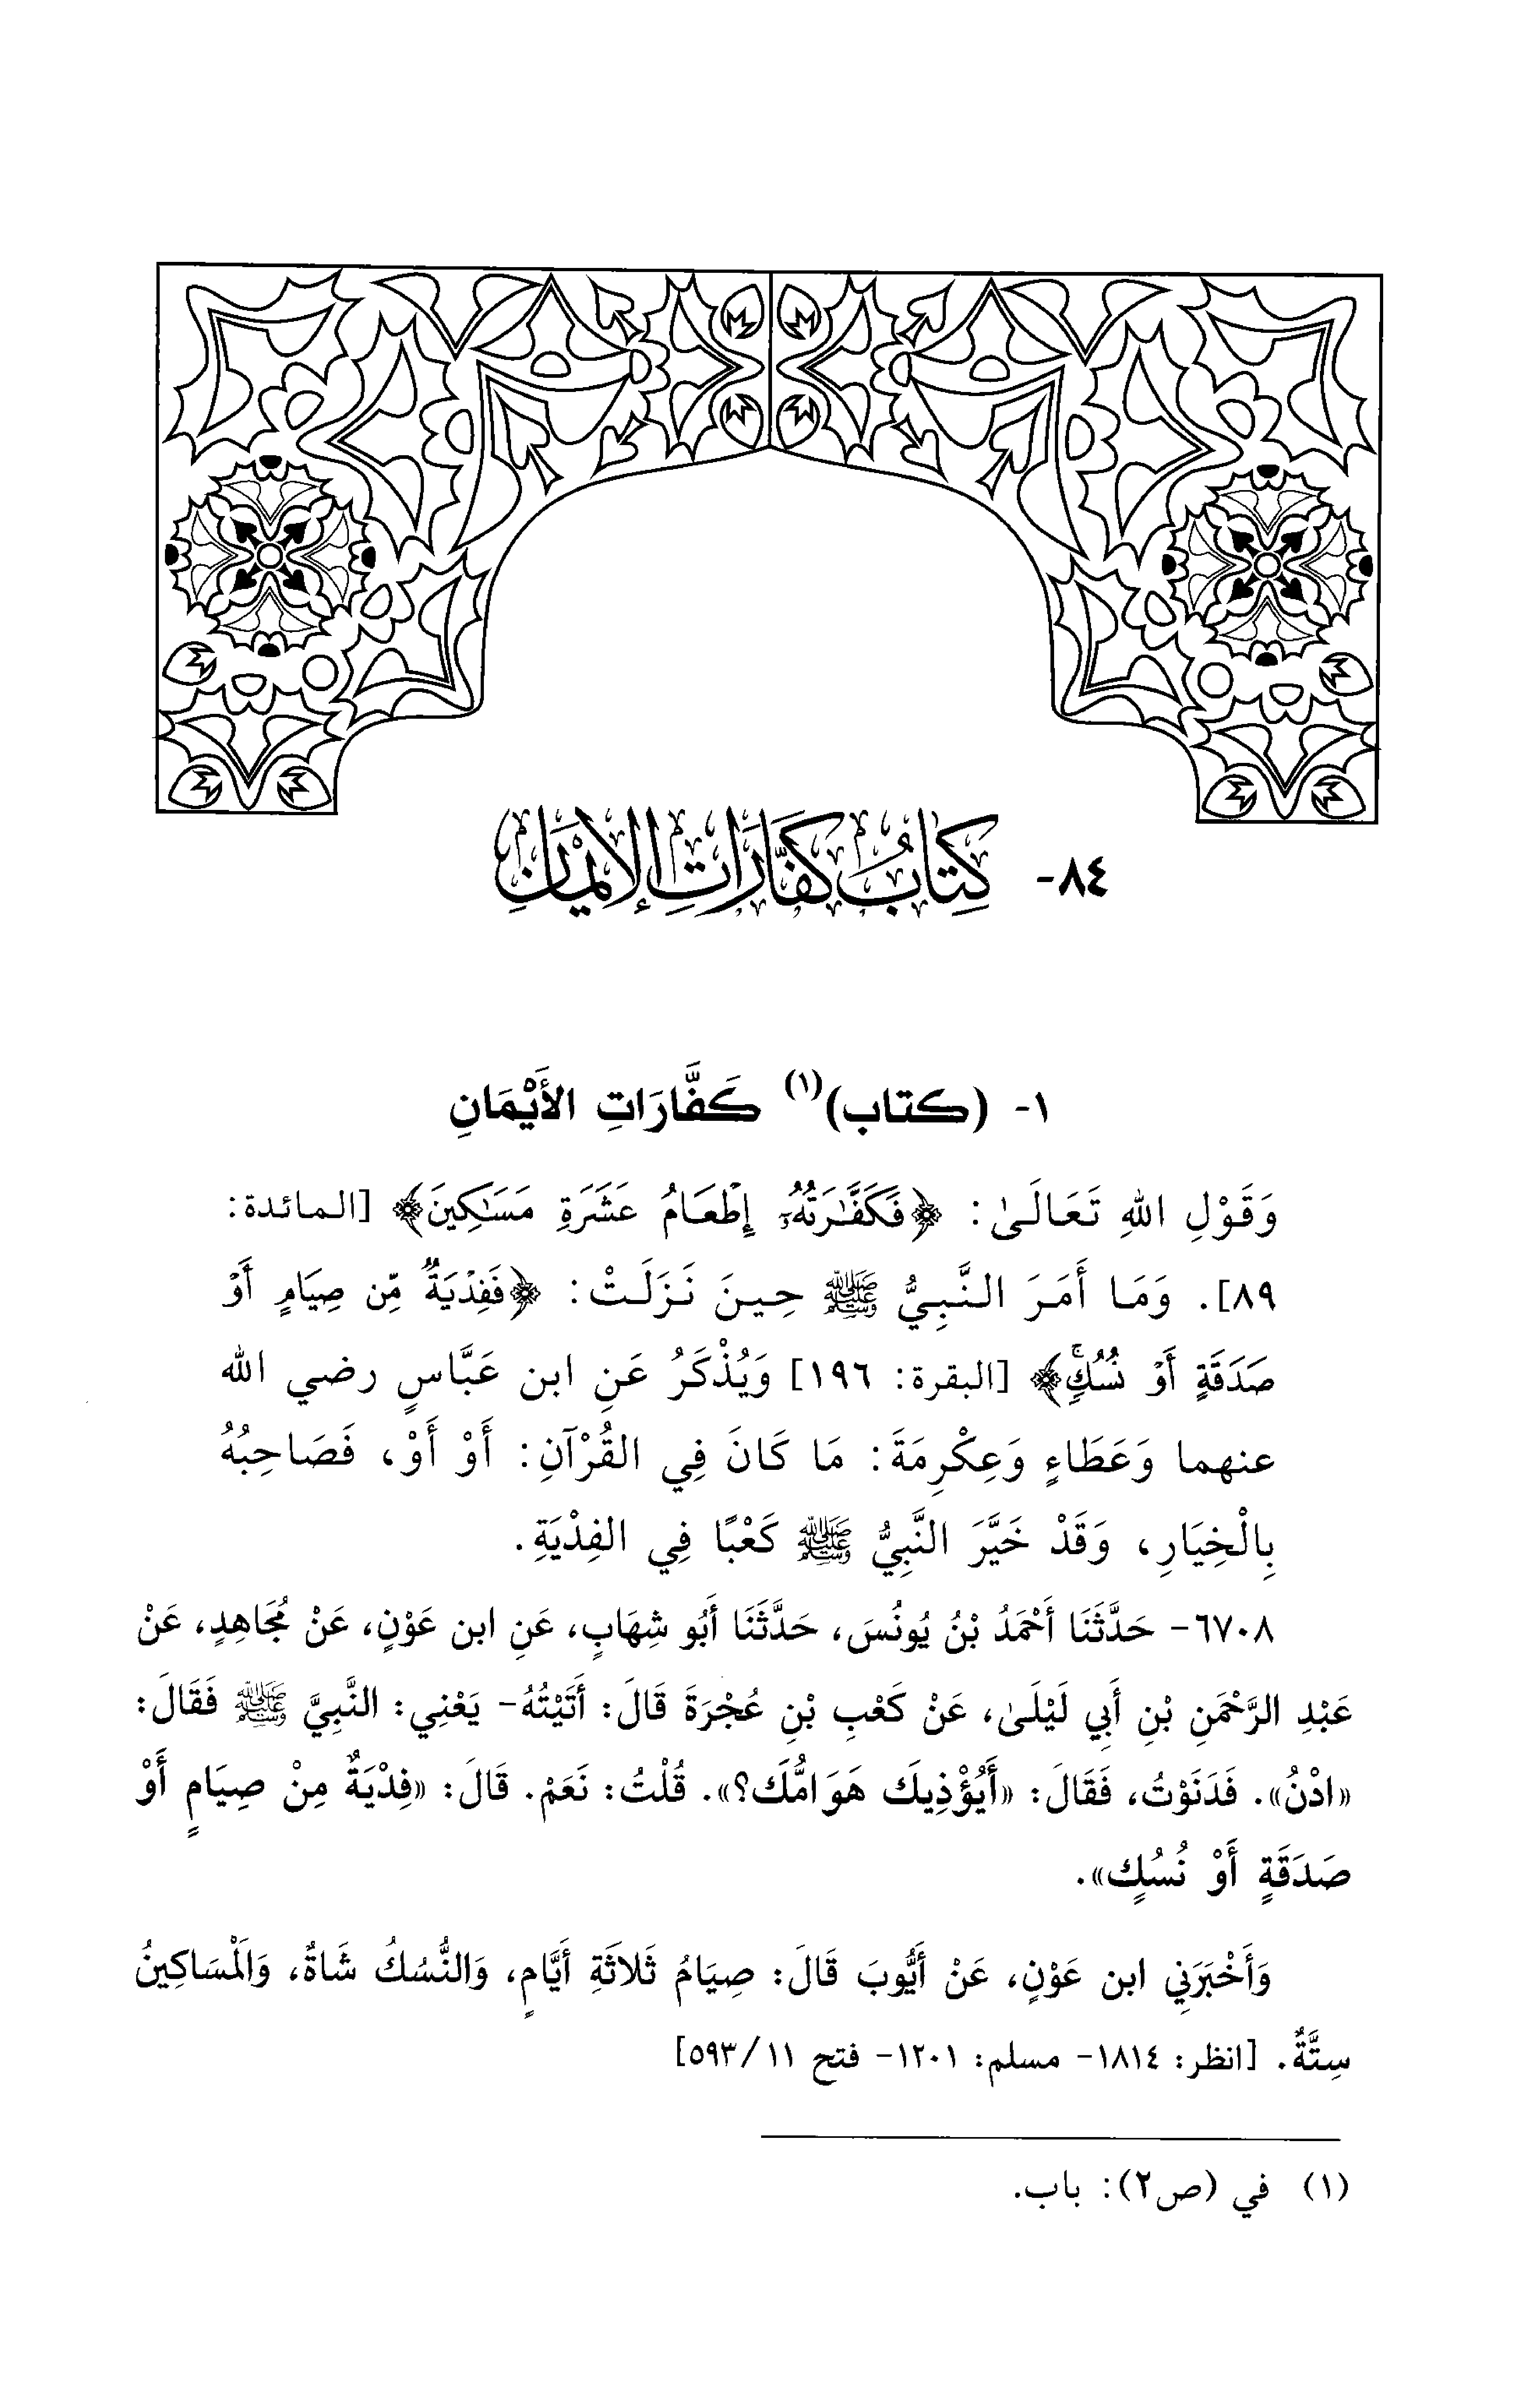 ٨٤- كِتَابُ كَفَّارَاتِ الإِيْمَانِ
١- (كتاب)(١) كَفَّارَاتِ الأَيْمَانِ
وَقَوْلِ اللهِ تَعَالَىٰ: ﴿فَكَفَّـٰرَتُهُۥٓ إِطْعَامُ عَشَرَةِ مَسَـٰكِينَ﴾ [المائدة:
٨٩]. وَمَا أَمَرَ النَّبِيُّ ﷺ حِينَ نَزَلَتْ: ﴿فَفِدْيَةٌ مِّن صِيَامٍ أَوْ
صَدَقَةٍ أَوْ نُسُكٍۚ﴾ [البقرة: ١٩٦] وَيُذْكَرُ عَنِ ابن عَبَّاسٍ رضي الله
عنهما وَعَطَاءٍ وَعِكْرِمَةَ: مَا كَانَ فِي القُرْآنِ: أَوْ أَوْ، فَصَاحِبُهُ
بِالْخِيَارِ، وَقَدْ خَيَّرَ النَّبِيُّ ﷺ كَعْبًا فِي الفِدْيَةِ.
٦٧٠٨- حَدَّثَنَا أَحْمَدُ بْنُ يُونُسَ، حَدَّثَنَا أَبُو شِهَابٍ، عَنِ ابن عَوْنٍ، عَنْ مُجَاهِدٍ، عَنْ
عَبْدِ الرَّحْمَنِ بْنِ أَبِي لَيْلَىٰ، عَنْ كَعْبِ بْنِ عُجْرَةَ قَالَ: أَتَيْتُهُ- يَعْنِي: النَّبِيَّ ﷺ فَقَالَ:
«ادْنُ». فَدَنَوْتُ، فَقَالَ: «أَيُؤْذِيكَ هَوَامُّكَ؟». قُلْتُ: نَعَمْ. قَالَ: «فِدْيَةٌ مِنْ صِيَامٍ أَوْ
صَدَقَةٍ أَوْ نُسُكٍ».
وَأَخْبَرَنِي ابن عَوْنٍ، عَنْ أَيُّوبَ قَالَ: صِيَامُ ثَلاثَةِ أَيَّامٍ، وَالنُّسُكُ شَاةٌ، وَالْمَسَاكِينُ
سِتَّةٌ. [انظر: ١٨١٤- مسلم: ١٢٠١- فتح ١١/ ٥٩٣]
(١) في (ص٢): باب.